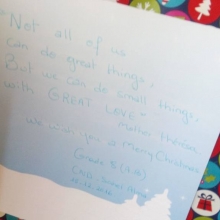 "Not all of us
can do great things,
But we can do small things,
with GREAT LOVE"
Mother Theresa
We wish you a Merry Christmas
Grade 5